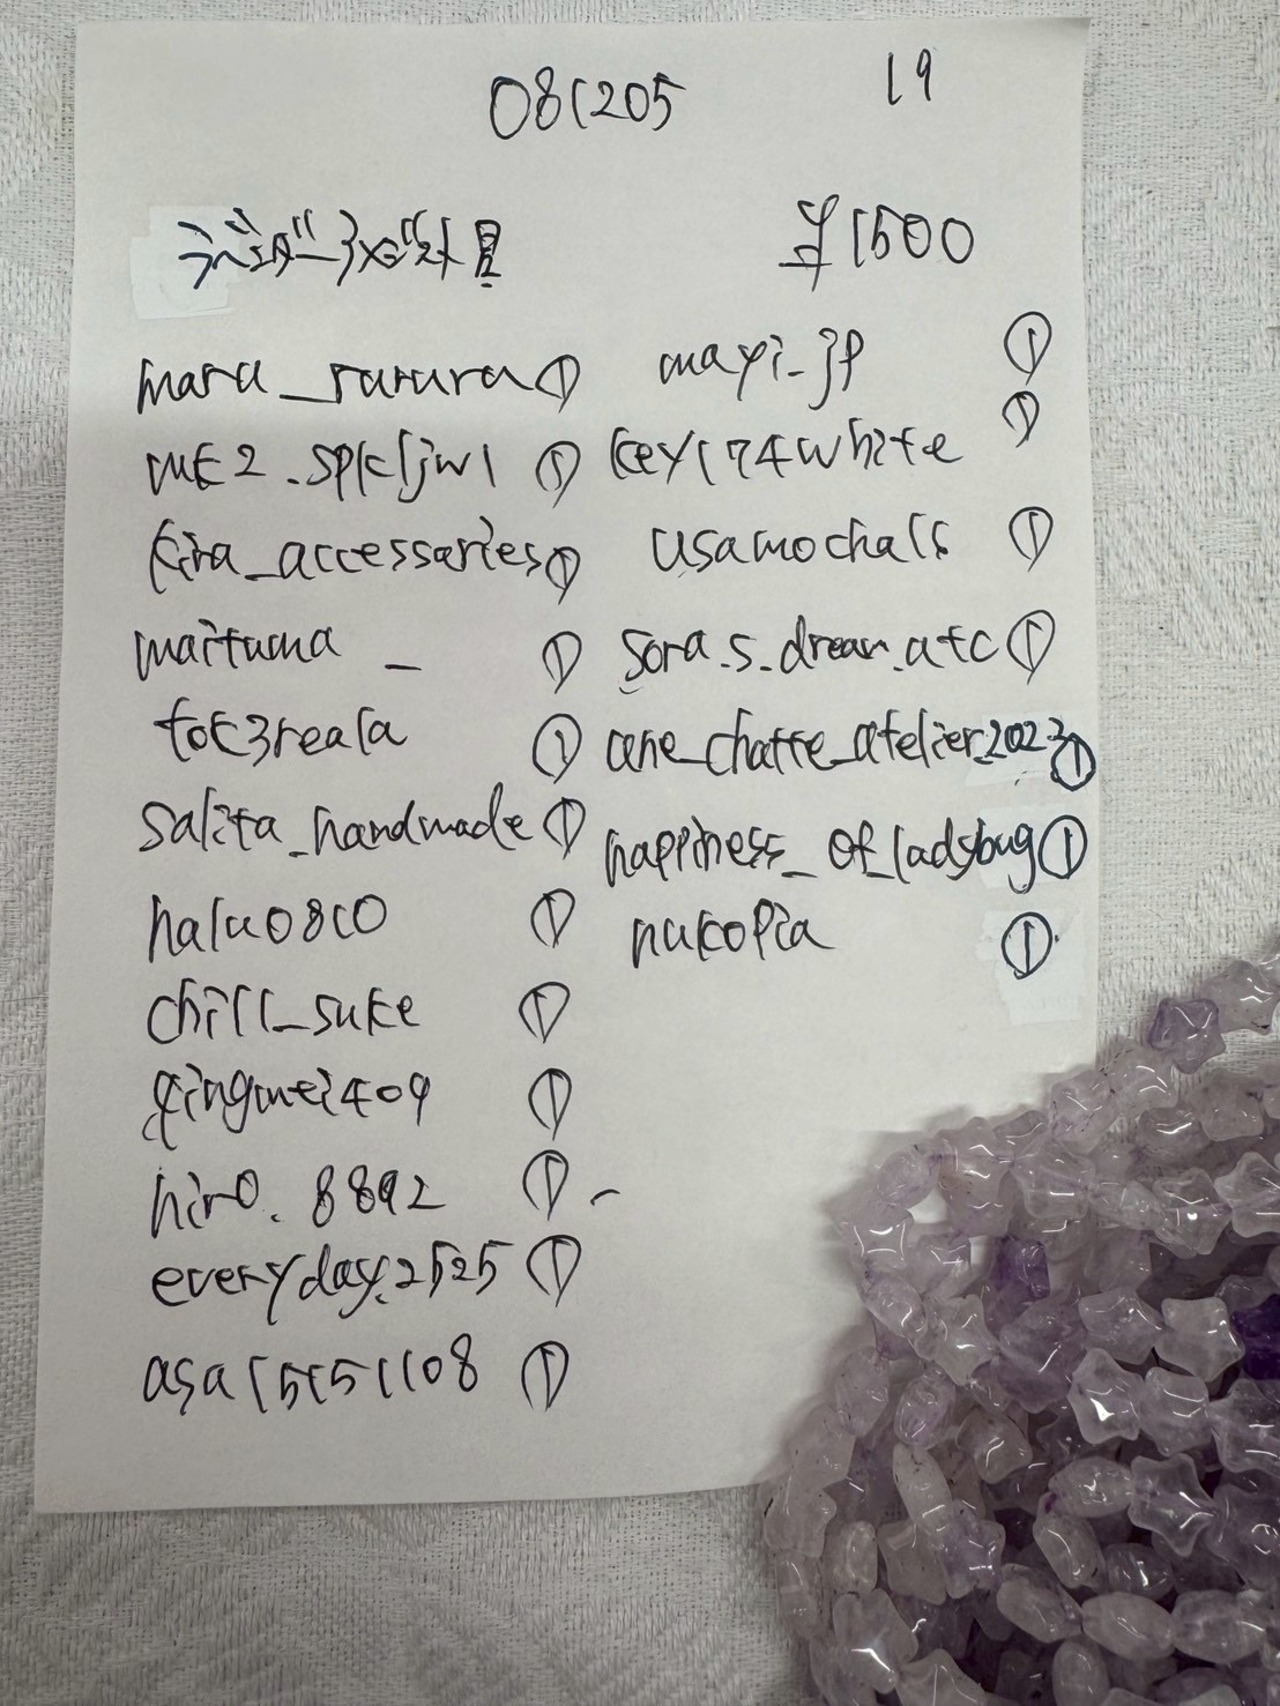 081205
19
ラベンダーアメジスト星
¥1500
maru_rurura ①
me2.spkljw1 ①
kira_accessories ①
maituma _ ①
tok3reala ①
salita_handmade ①
halu0810 ①
chill_suke ①
qingmei409 ①
hiro.8892 ①
everyday.2525 ①
asa15151108 ①
mayi_jp ①
key174white ①
usamochals ①
sora.s.dream.atc ①
une_chatte_atelier.2023 ①
happiness_of_ladybug ①
nukopia ①